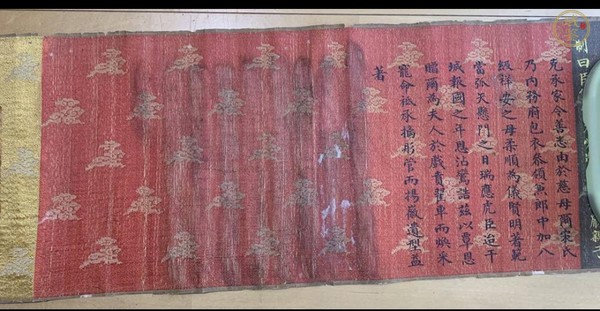 制曰臣
克承家令善悉由於慈母爾宋氏
乃内務府包衣叅領兼郎中加八
級祥安之母柔順為儀賢明著範
當弧矢懸門之日瑞應虎臣迨干
城報國之年恩沾鸞誥茲以覃恩
贈爾為夫人於戲貴翟車而煥采
寵命祗承揚彤管而揚徽遺型益
著